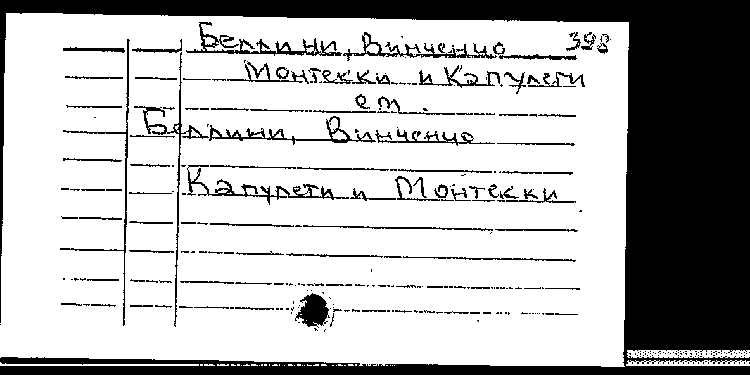 Беллини, Винченцо 398
Монтекки и Капулети
ст.
Беллини, Винченцо
Капулети и Монтекки